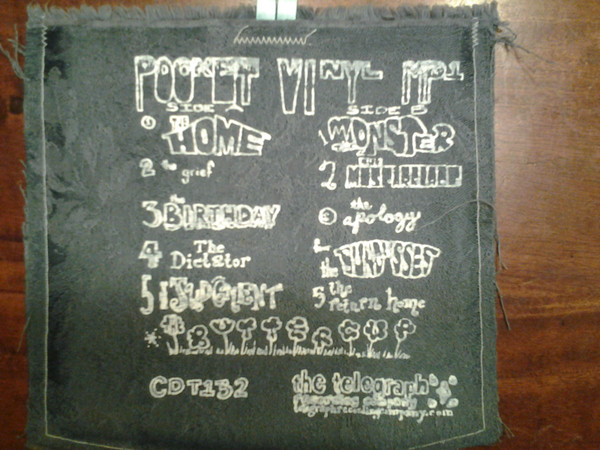 POCKET VINYL
SIDE
1 the HOME
2 the grief
3 the BIRTHDAY
4 The Dictator
5 the JUDGMENT
SIDE B
1 the MONSTER
2 the
3 the apology
the
5 the return home
* BUTTERCUP
CDT152
the telegraph
recording company
telegraphrecordingcompany.com